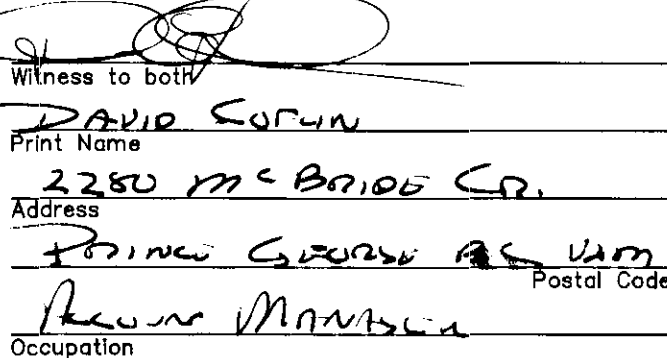 Witness to both
DAVID
Print Name
2280 McBRIDE CR.
Address
PRINCE GEORGE BC
Postal Code
ACCOUNT MANAGER
Occupation